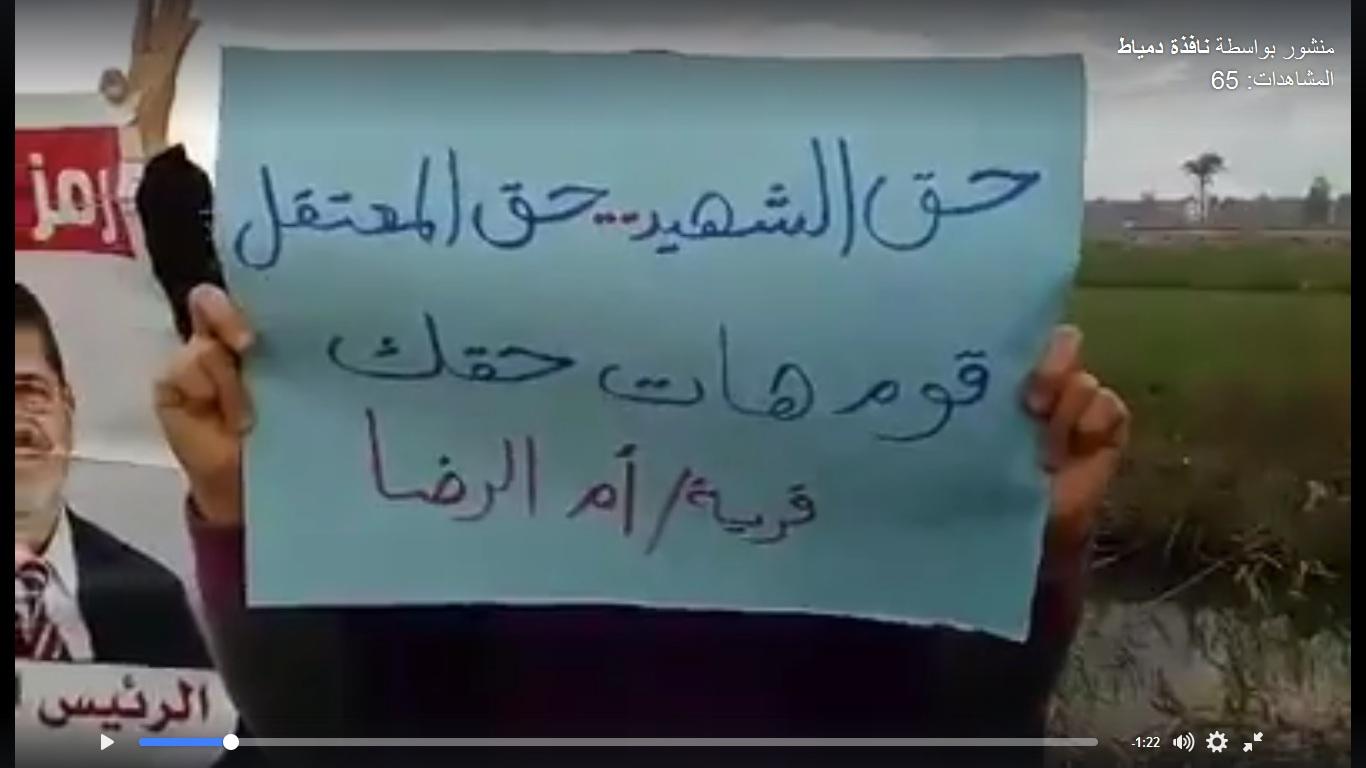 منشور بواسطة نافذة دمياط
المشاهدات: 65
حق الشهيد..حق المعتقل
قوم هات حقك
قرية/أم الرضا
رمز
الرئيس
-1:22